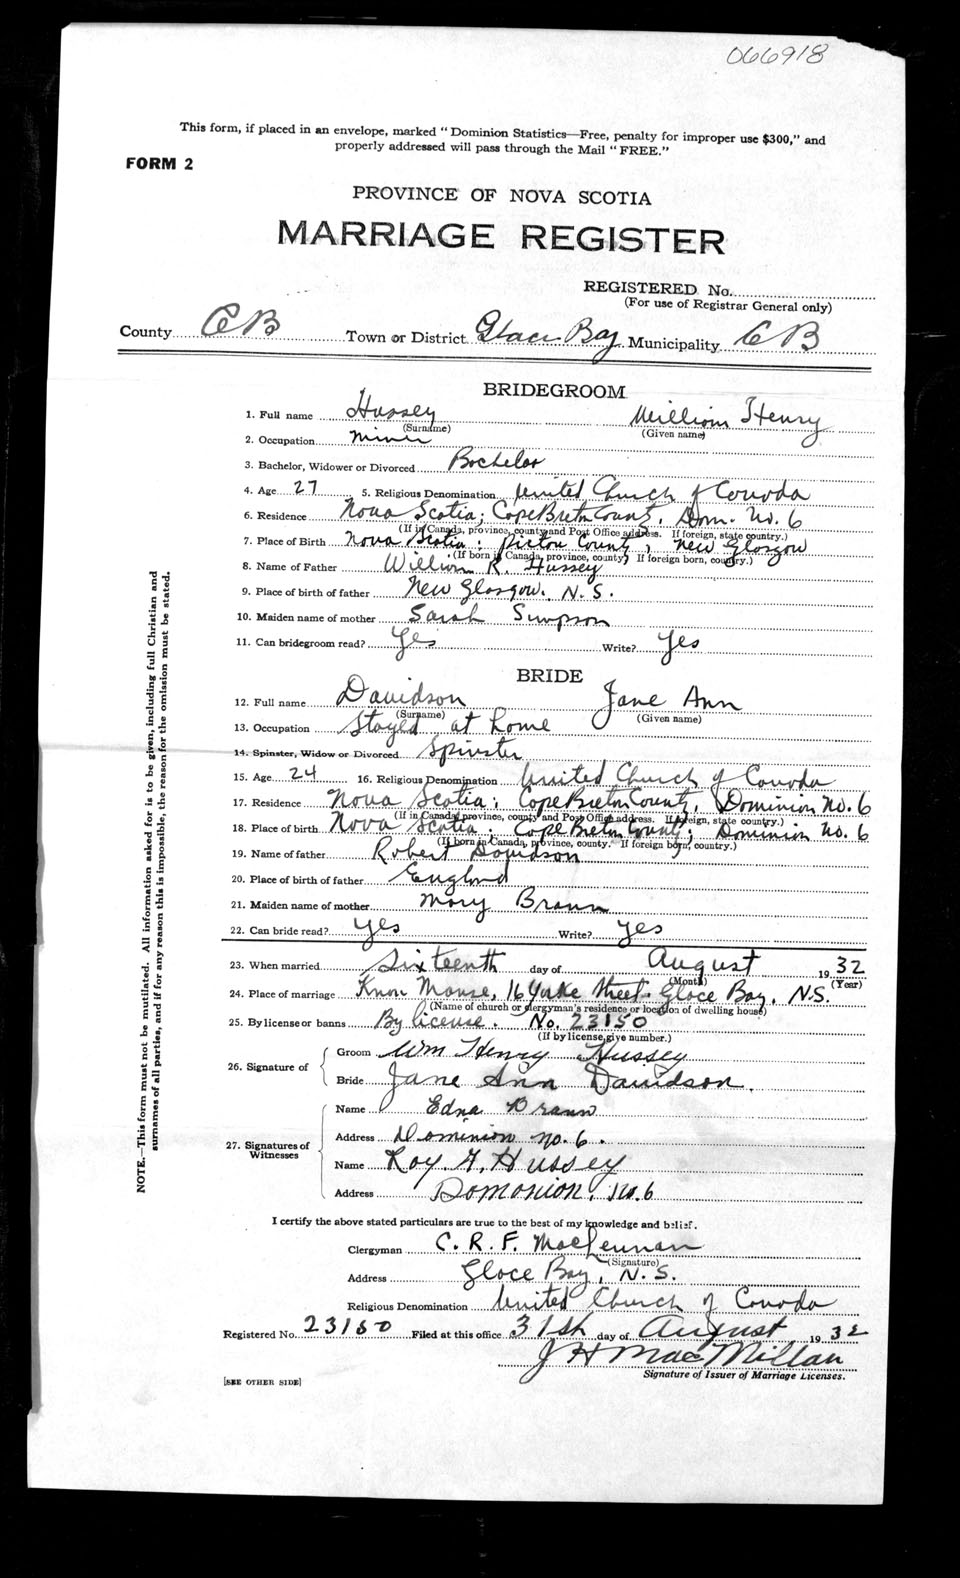 066918
This form, if placed in an envelope, marked "Dominion Statistics—Free, penalty for improper use $300," and
properly addressed will pass through the Mail "FREE."
FORM 2
PROVINCE OF NOVA SCOTIA
MARRIAGE REGISTER
REGISTERED No.
(For use of Registrar General only)
County CB Town or District Glace Bay Municipality CB
BRIDEGROOM
1. Full name Hussey William Henry
(Surname) (Given name)
2. Occupation miner
3. Bachelor, Widower or Divorced Bachelor
4. Age 27 5. Religious Denomination United Church of Canada
6. Residence Nova Scotia; Cape Breton County, Dom. No. 6
(If in Canada, province, county and Post Office address. If foreign, state country.)
7. Place of Birth Nova Scotia; Pictou County, New Glasgow
(If born in Canada, province, county. If foreign born, country.)
8. Name of Father William R. Hussey
9. Place of birth of father New Glasgow, N.S.
10. Maiden name of mother Sarah Simpson
11. Can bridegroom read? Yes Write? Yes
BRIDE
12. Full name Davidson Jane Ann
(Surname) (Given name)
13. Occupation Stayed at home
14. Spinster, Widow or Divorced Spinster
15. Age 24 16. Religious Denomination United Church of Canada
17. Residence Nova Scotia; Cape Breton County, Dominion No. 6
(If in Canada, province, county and Post Office address. If foreign, state country.)
18. Place of birth Nova Scotia; Cape Breton County; Dominion No. 6
(If born in Canada, province, county. If foreign born, country.)
19. Name of father Robert Davidson
20. Place of birth of father England
21. Maiden name of mother Mary Brann
22. Can bride read? Yes Write? Yes
23. When married Sixteenth day of August 1932
(Month) (Year)
24. Place of marriage Knox Manse, 16 Street Glace Bay, N.S.
(Name of church or clergyman's residence or location of dwelling house)
25. By license or banns By license. No. 23150
(If by license, give number.)
26. Signature of
Groom Wm Henry Hussey
Bride Jane Ann Davidson.
27. Signatures of Witnesses
Name Edna Brann
Address Dominion no. 6.
Name Roy. G. Hussey
Address Domonion. No. 6
I certify the above stated particulars are true to the best of my knowledge and belief.
Clergyman C. R. F. MacLennan
(Signature)
Address Glace Bay, N.S.
Religious Denomination United Church of Canada
Registered No. 23150 Filed at this office 31st day of August 1932
J H MacMillan
Signature of Issuer of Marriage Licenses.
[SEE OTHER SIDE]
NOTE.—This form must not be mutilated. All information asked for is to be given, including full Christian and
surnames of all parties, and if for any reason this is impossible, the reason for the omission must be stated.